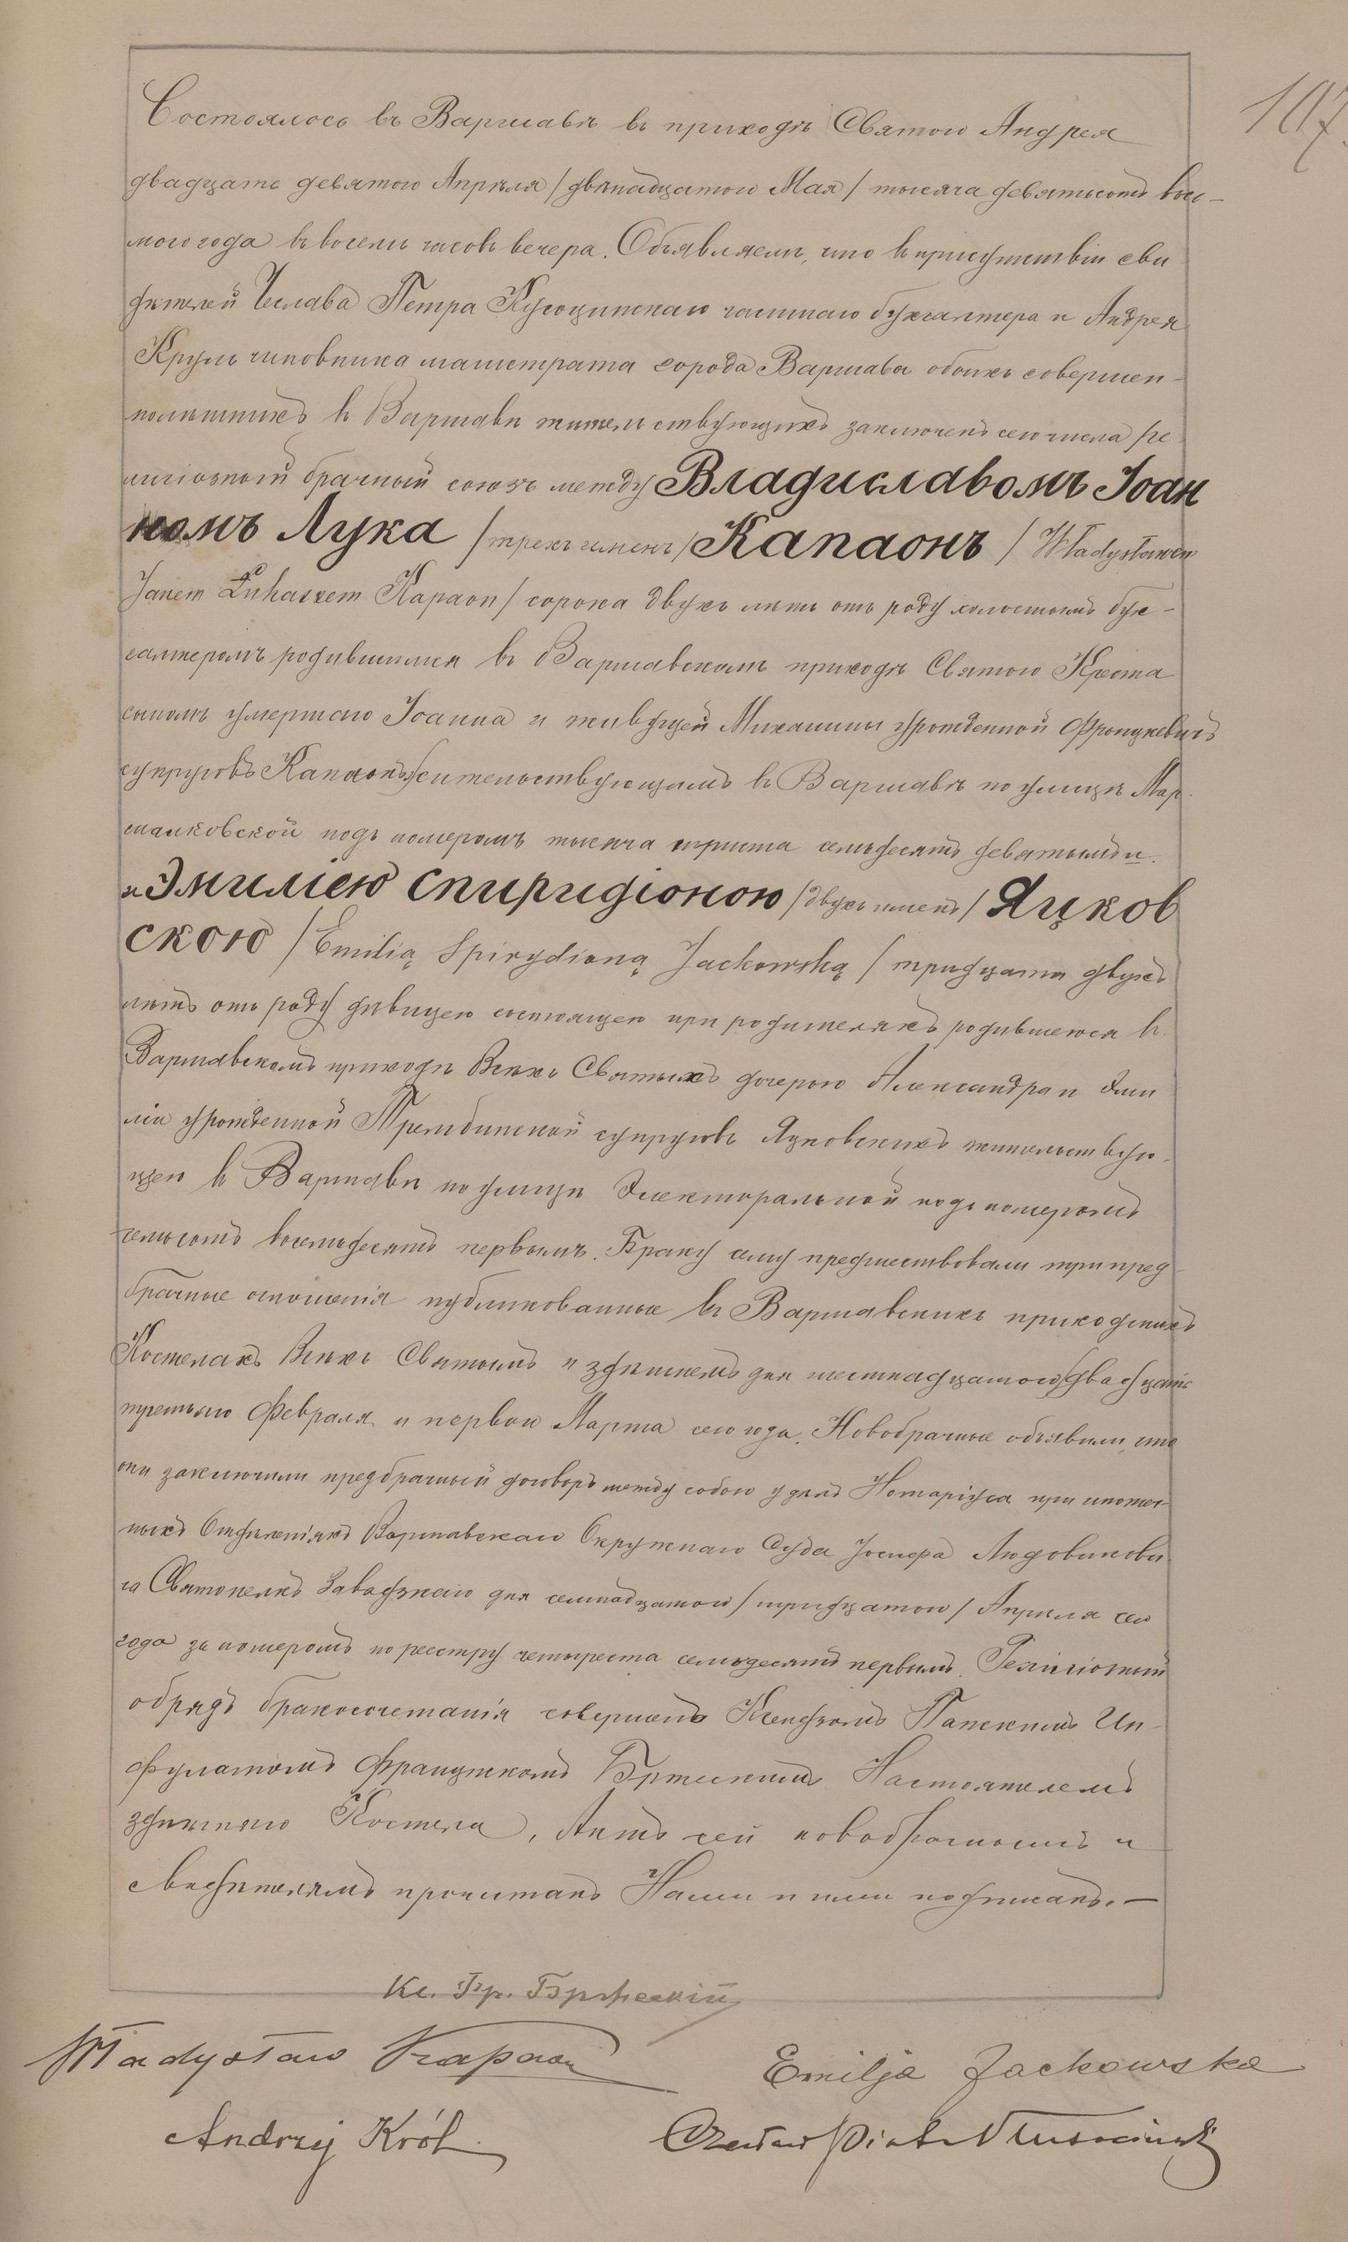 107.
Состоялось въ Варшавѣ въ приходѣ Святого Андрея
двадцать девятого Апрѣля / двѣнадцатого Мая / тысяча девятьсотъ вось-
мого года въ восемь часовъ вечера. Объявляемъ, что въ присутствіи сви
дѣтелей Чеслава Петра частнаго бухгалтера и Андрея
Круль чиновника магистрата города Варшавы обоихъ совершен-
нолѣтнихъ въ Варшавѣ жительствующихъ заключенъ сего числа ре
лигіозный брачный союзъ между Владиславомъ Іоан
номъ Лука / трехъ именъ / Капаонъ / Władysławem
Janem Łukaszem Kapaon / сорока двухъ лѣтъ отъ роду холостымъ бух-
галтеромъ родившимся въ Варшавскомъ приходѣ Святого Креста
сыномъ умершаго Іоанна и живущей Михалины урожденной Фронцкевичъ
супруговъ Капаонъ жительствующимъ въ Варшавѣ по улицѣ Мар-
шалковской подъ номеромъ тысяча триста семьдесятъ девятымъ и
и Эмиліею Спиридіоною / двухъ именъ / Яцков
скою / Emilią Spirydioną Jackowską / тридцати двухъ
лѣтъ отъ роду дѣвицею состоящею при родителяхъ родившеюся въ
Варшавскомъ приходѣ Всѣхъ Святыхъ дочерью Александра и Эми
ліи урожденной Трембинской супруговъ Яцковскихъ жительствую-
щею въ Варшавѣ по улицѣ Электоральной подъ номеромъ
семьсотъ восемьдесятъ первымъ. Браку сему предшествовали три пред-
брачные оглашенія публикованные въ Варшавскихъ приходскихъ
Костелахъ Всѣхъ Святыхъ и здѣшнемъ дня шестнадцатого двадцать
третьяго Февраля и первого Марта сего года. Новобрачные объявили, что
они заключили предбрачный договоръ между собою у дѣлъ Нотаріуса при ипотеч-
ныхъ Отдѣленіяхъ Варшавскаго Окружнаго Суда Іосифа Людвикови
ча Святополкъ Завадзкаго дня семнадцатого / тридцатого / Апрѣля сего
года за номеромъ по реестру четыреста семьдесятъ первымъ. Религіозный
обрядъ бракосочетанія совершенъ Ксендзомъ Папскимъ Ин-
фулатомъ Францискомъ Бржескимъ Настоятелемъ
здѣшняго Костела. Актъ сей новобрачнымъ и
свидѣтелямъ прочитанъ Нами и ими подписанъ. —
Кс. Фр. Бржескій
Władysław Kapaon
Emilja Jackowska
Andrzej Król
Czesław Piotr